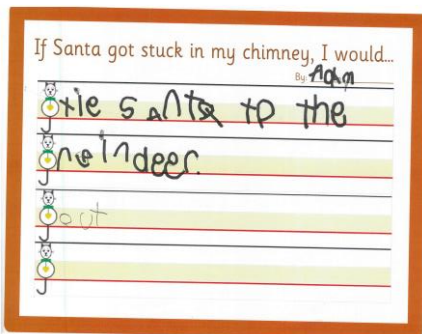 If Santa got stuck in my chimney, I would...
By: Adam
tie santa to the
reindeer.
out